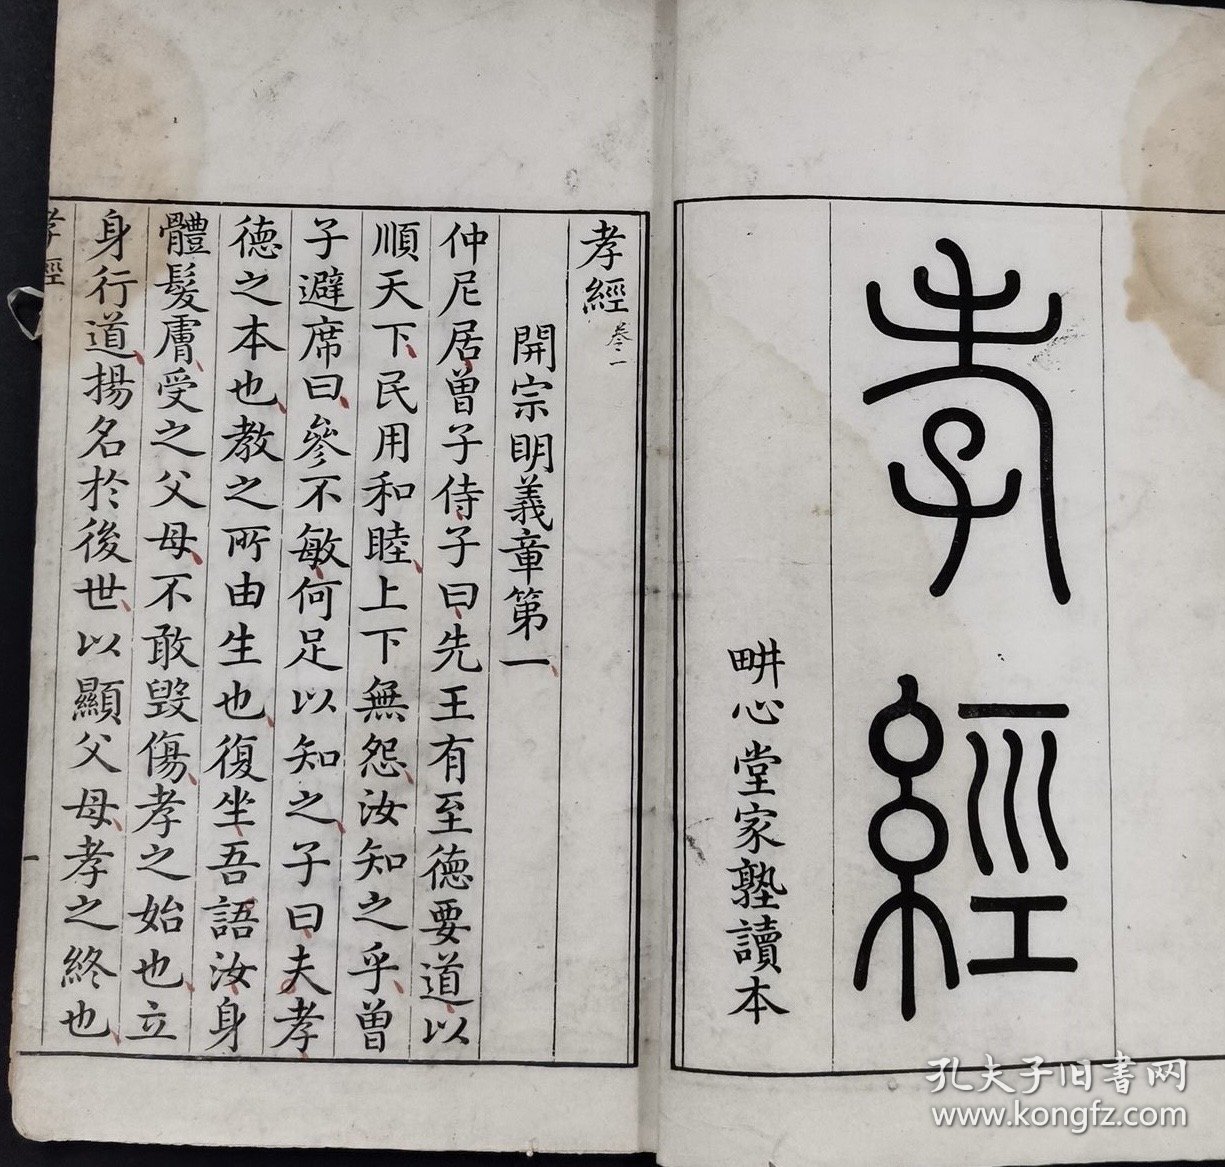 孝經
畊心堂家塾讀本
孝經 卷一
開宗明義章第一
仲尼居曾子侍子曰先王有至德要道以
順天下民用和睦上下無怨汝知之乎曾
子避席曰參不敏何足以知之子曰夫孝
德之本也教之所由生也復坐吾語汝身
體髮膚受之父母不敢毀傷孝之始也立
身行道揚名於後世以顯父母孝之終也
孝經
一
孔夫子旧书网
www.kongfz.com